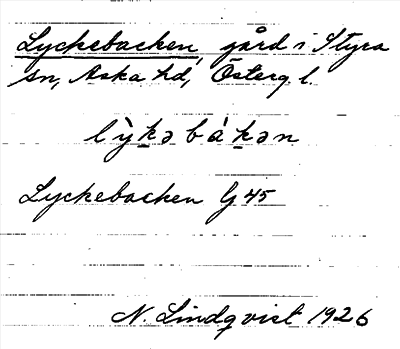 Lyckebacken, gård i Styra
sn, Aska hd, Österg l.
lỳkə bákən
Lyckebacken G 45
N. Lindqvist 1926